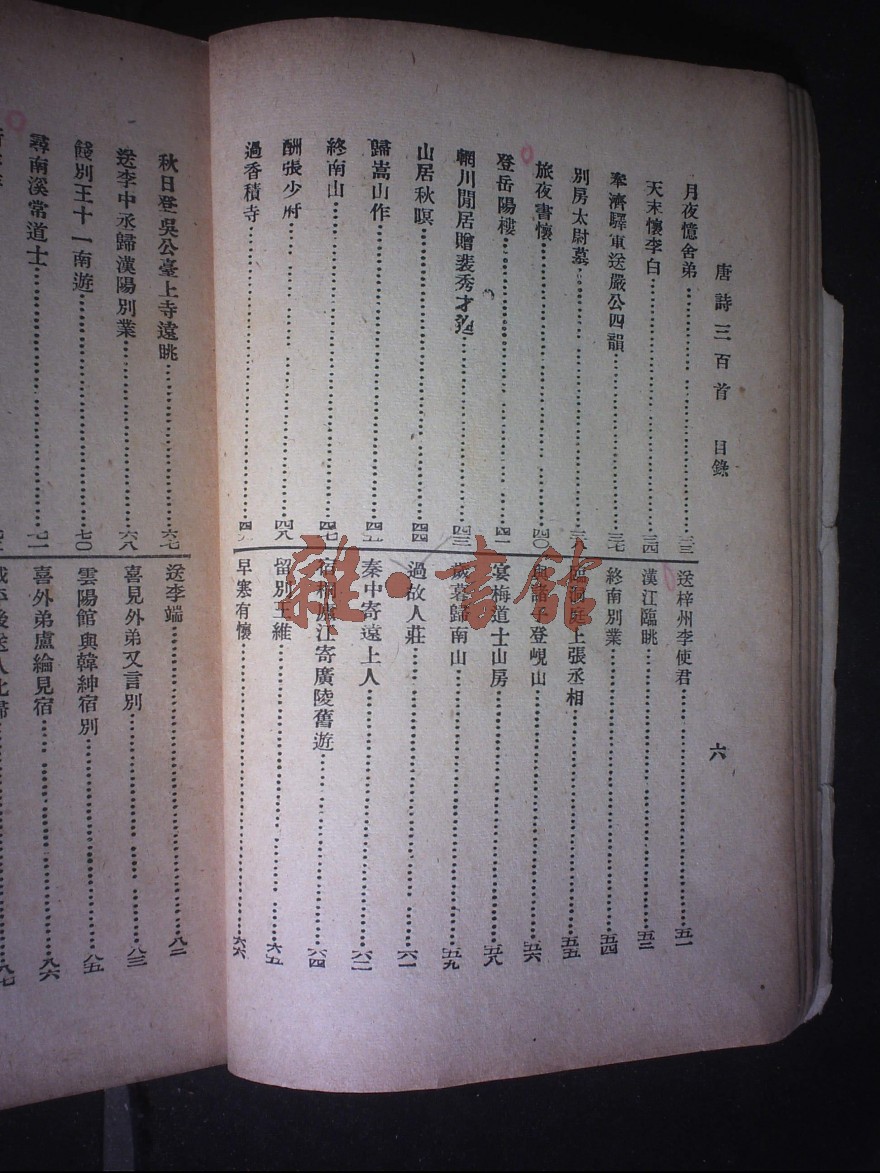 唐詩三百首 目錄 六
月夜憶舍弟 三三
天末懷李白 三四
奉濟驛重送嚴公四韻 三七
別房太尉墓
旅夜書懷 四〇
登岳陽樓 四一
輞川閒居贈裴秀才迪 四三
山居秋暝 四四
歸嵩山作 四五
終南山 四七
酬張少府 四八
過香積寺 四九
送梓州李使君 五一
漢江臨眺 五三
終南別業 五四
洞庭上張丞相 五五
與諸子登峴山 五六
宴梅道士山房 五八
歲暮歸南山 五九
過故人莊 六一
秦中寄遠上人 六二
宿桐廬江寄廣陵舊遊 六四
留別王維 六五
早寒有懷 六六
秋日登吳公臺上寺遠眺 六七
送李中丞歸漢陽別業 六八
餞別王十一南遊 七〇
尋南溪常道士 七一
送李端 八二
喜見外弟又言別 八三
雲陽館與韓紳宿別 八五
喜外弟盧綸見宿 八六
八七
雜·書館